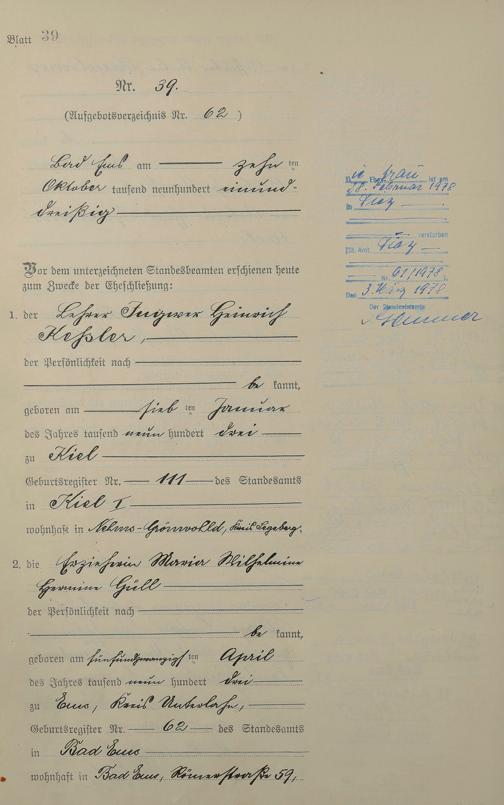 Blatt 39
Nr. 39.
(Aufgebotsverzeichnis Nr. 62)
Bad Ems am zehn ten
Oktober tausend neunhundert einund-
dreißig
Vor dem unterzeichneten Standesbeamten erschienen heute
zum Zwecke der Eheschließung:
1. der Lehrer Ingwer Heinrich
Keßler,
der Persönlichkeit nach
be kannt,
geboren am sieb ten Januar
des Jahres tausend neun hundert drei
zu Kiel
Geburtsregister Nr. 111 des Standesamts
in Kiel I
wohnhaft in Nehms-Grönwohld, Kreis Segeberg.
2. die Erzieherin Maria Wilhelmine
Hermine Güll
der Persönlichkeit nach
be kannt,
geboren am fünfundzwanzigs ten April
des Jahres tausend neun hundert drei
zu Ems, Kreis Unterlahn,
Geburtsregister Nr. 62 des Standesamts
in Bad Ems
wohnhaft in Bad Ems, Römerstraße 59,
frau ist am
Februar 1978
in
verstorben
(St. Amt
Nr. 61/1978).
3. März 1978
Der Standesbeamte